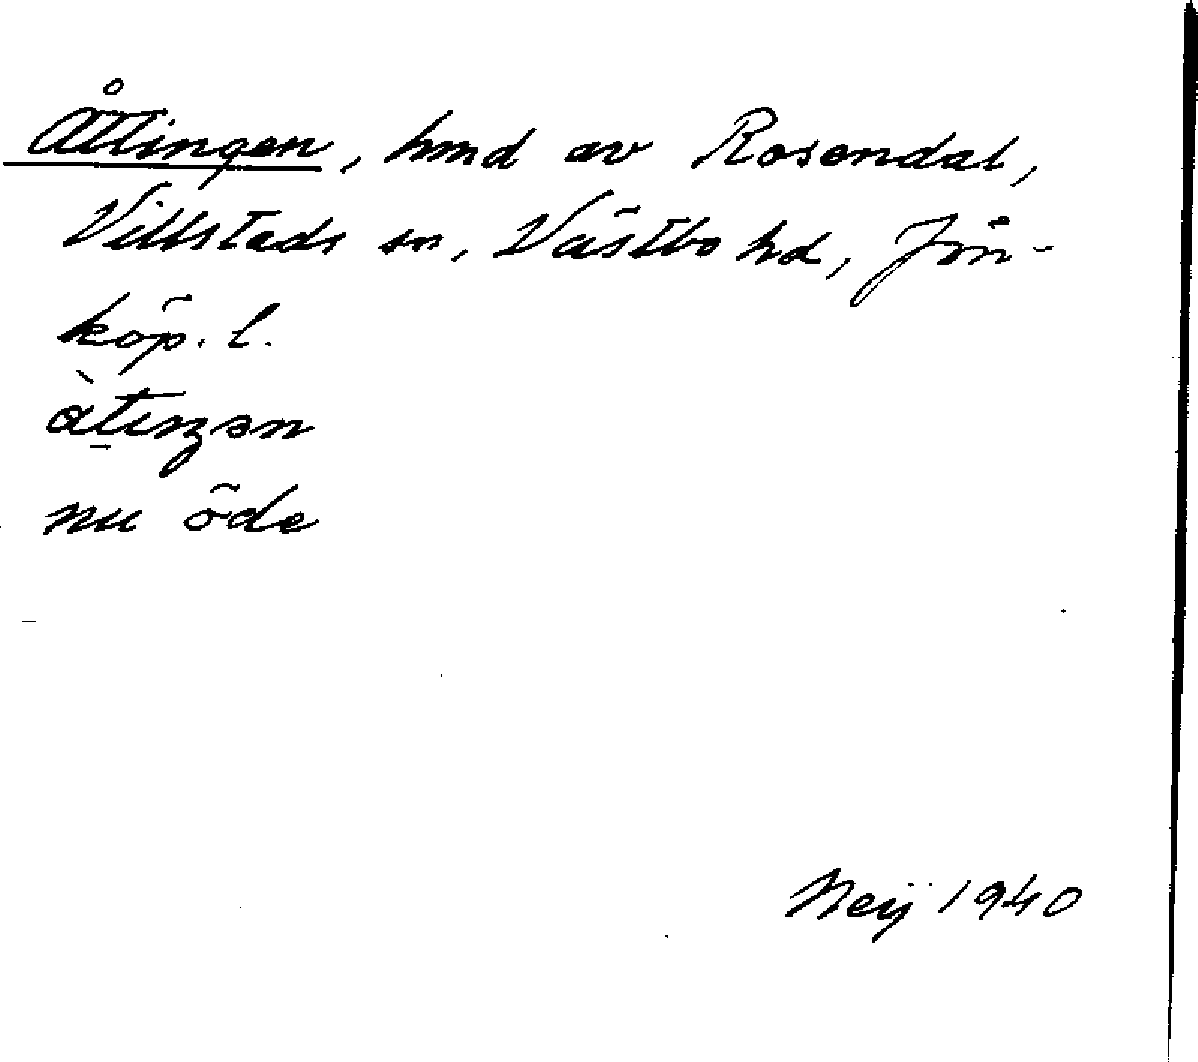 Åttingen, hmd av Rosendal,
Villstads sn, Västbo hd, Jön-
köp. l.
àt̠eŋən
nu öde
Neij 1940